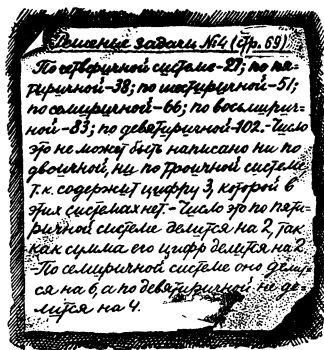 Решение задачи №4 (стр. 69)
По четверичной системе - 27; по пя-
тиричной - 38; по шестиричной - 51;
по семиричной - 66; по восьмирич-
ной - 83; по девятиричной - 102. - Число
это не может быть написано ни по
двоичной, ни по троичной систем.
т.к. содержит цифру 3, которой в
этих системах нет. - Число это по пяти-
ричной системе делится на 2, так
как сумма его цифр делится на 2
- По семиричной системе оно делит-
ся на 6, а по девятиричной не де-
лится на 4.